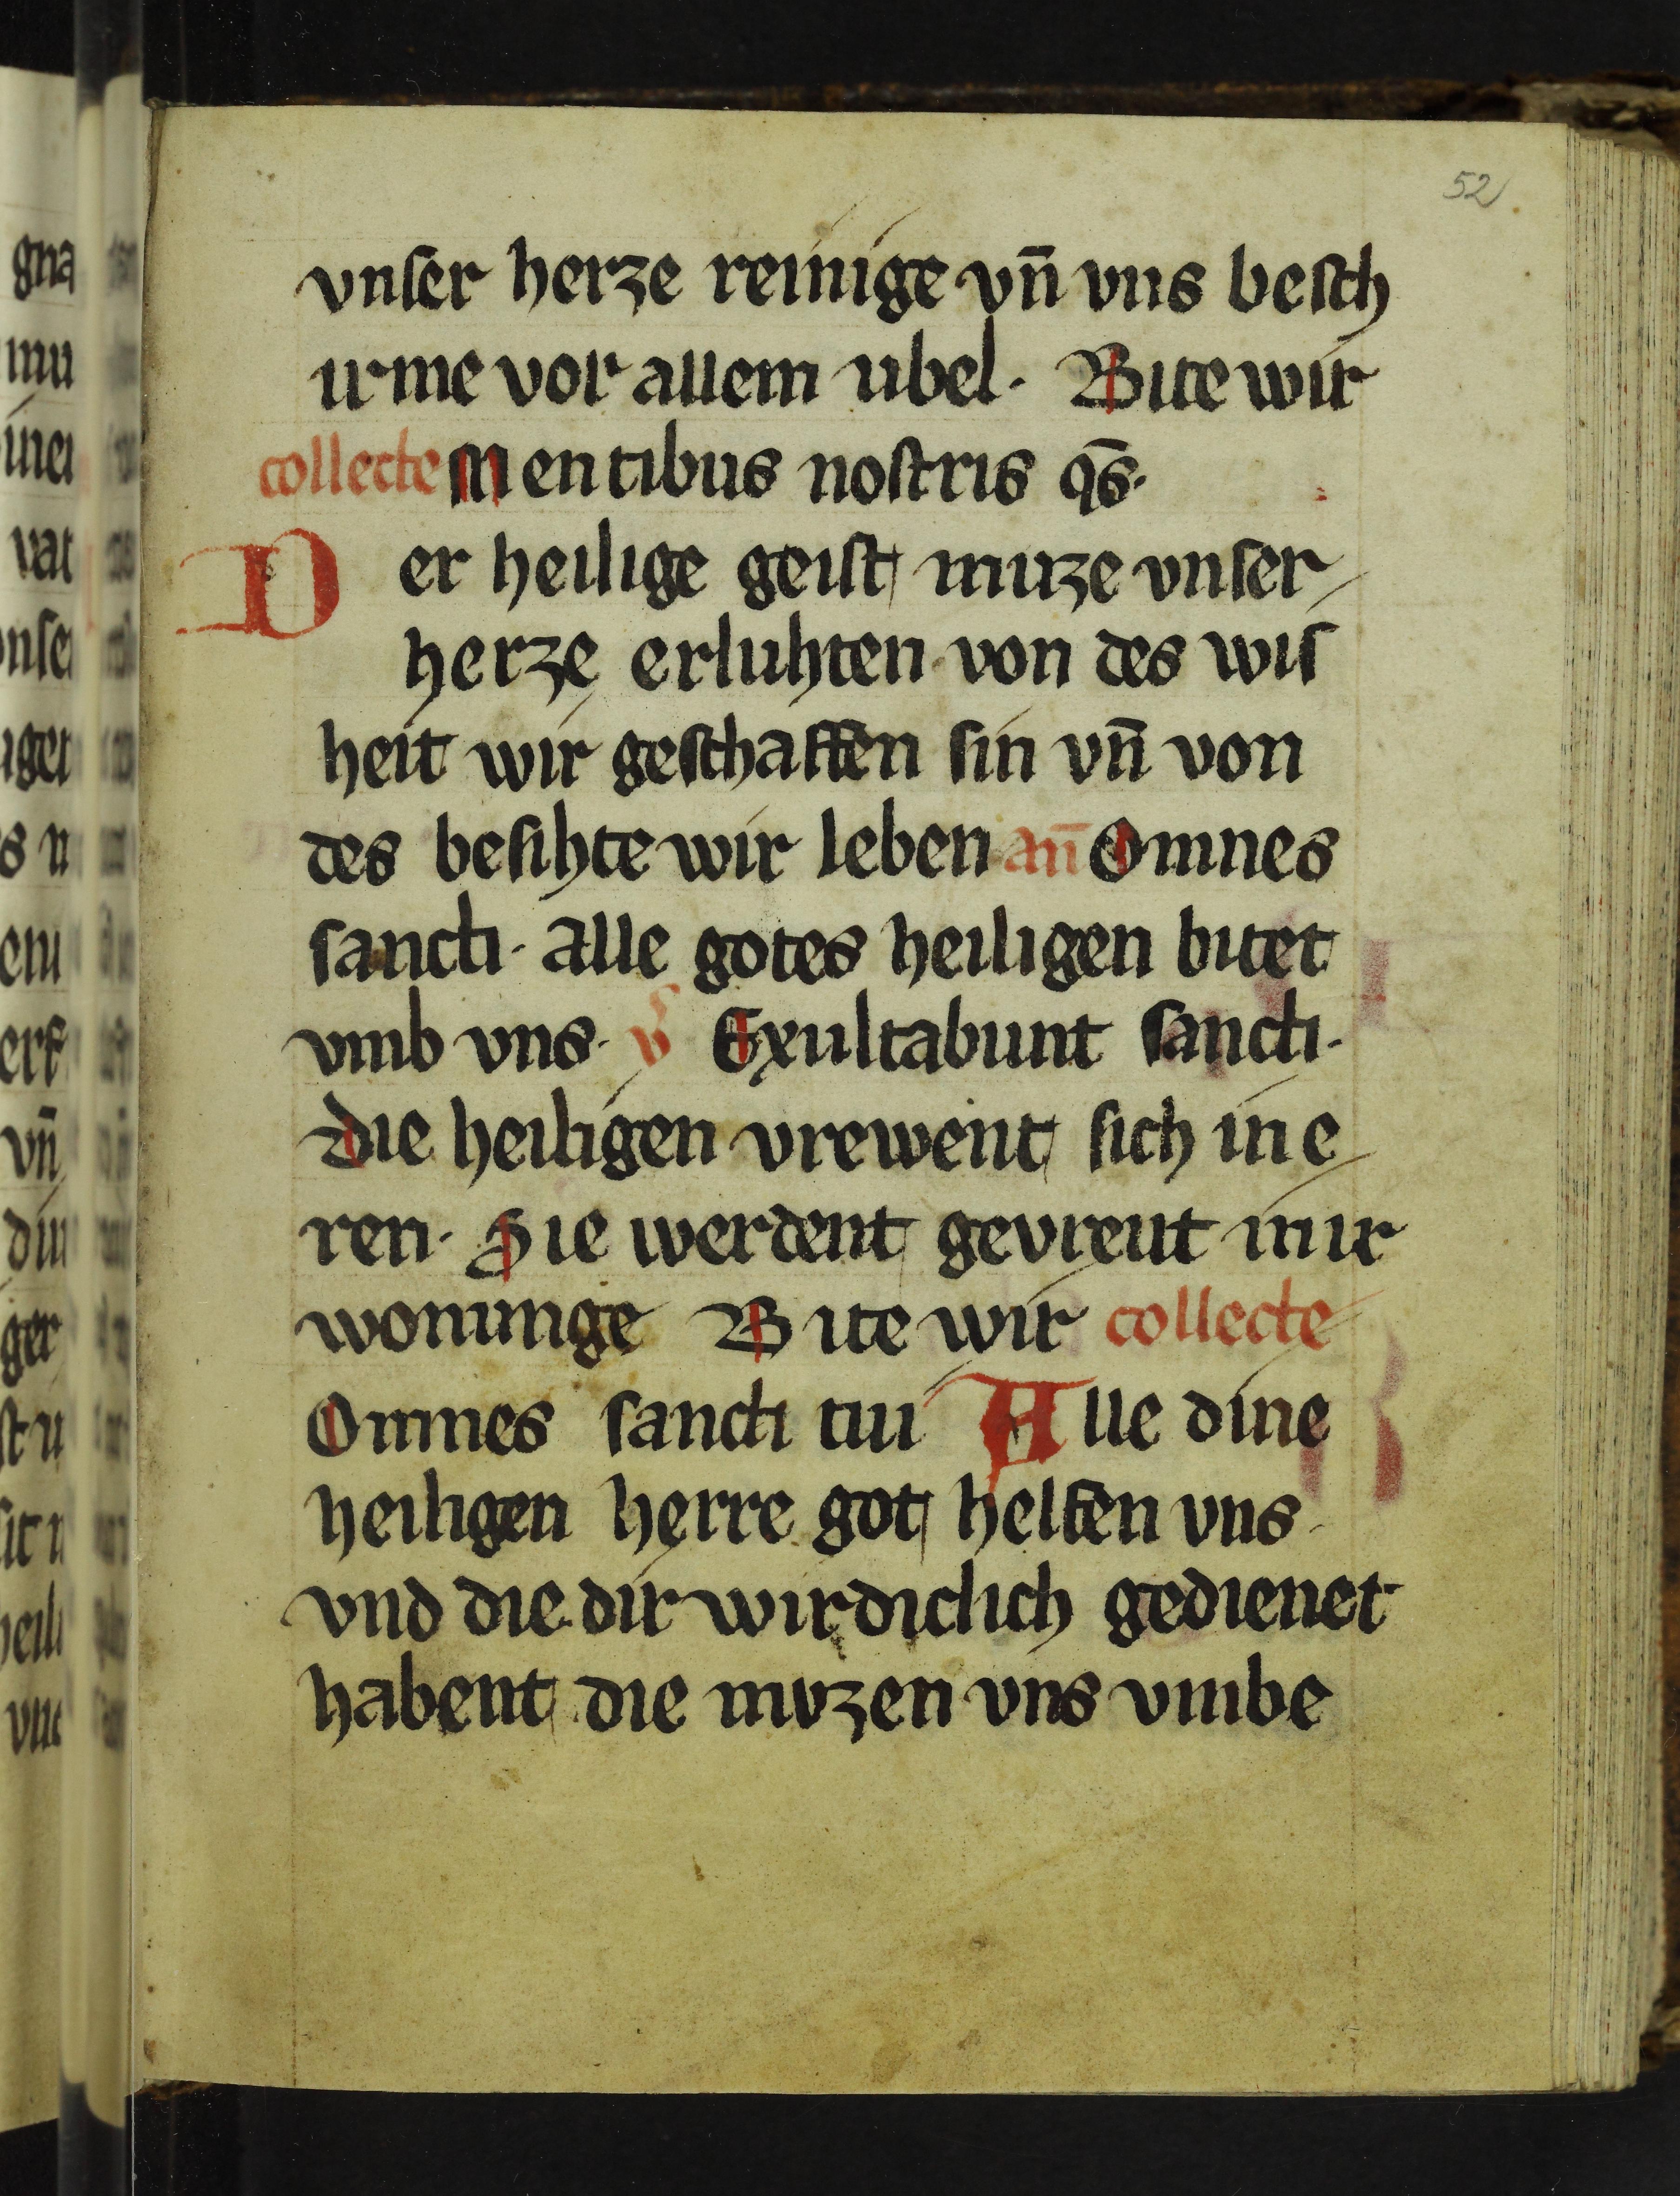 52
vnſer herze reinige vn̄ vns beſch
irme vor allem ubel · Bite wir
collecte Mentibus noſtris qs̄ ·
Der heilige geiſt muze vnſer
herze erluhten von des wiſ
heit wir geſchaffen ſin vn̄ von
des beſihte wir leben an̄ Omnes
ſancti · alle gotes heiligen bitet
vmb vns · v̄ Exultabunt ſancti ·
die heiligen vrewent ſich in e
ren · Sie werdent gevreut in ir
wonunge Bite wir collecte
Omnes ſancti tui Alle dine
heiligen herre got helfen vns
vnd die dir wirdiclich gedienet
habent die mvzen vns vmbe